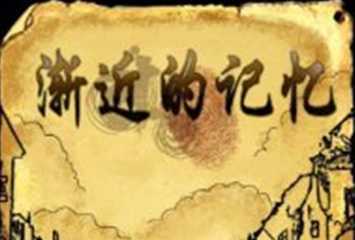 渐近的记忆